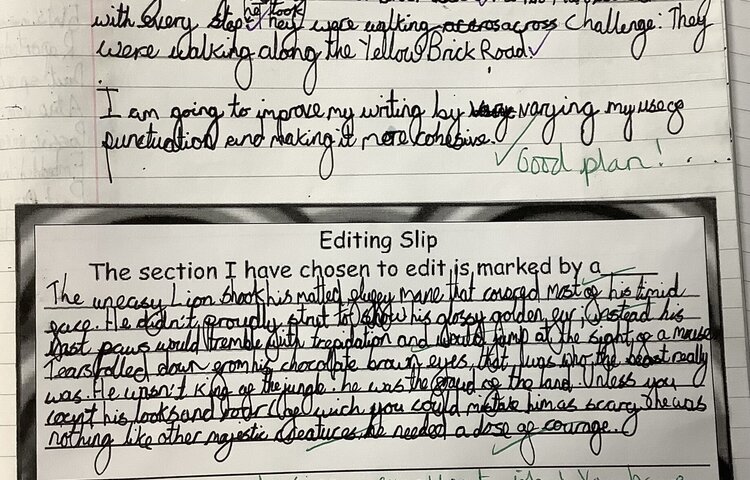 with every step that took they were walking across Challenge: They
were walking along the Yellow Brick Road.
I am going to improve my writing by varying my use of
punctuation and making it more cohesive.
Good plan!
Editing Slip
The section I have chosen to edit is marked by a
The uneasy Lion shook his matted, fluffy mane that covered most of his timid
face. He didn't proudly strut to show his glossy golden fur, instead his
vast paws would tremble with trepdation and would jump at the sight of a mouse.
Tears rolled down from his chocolate brown eyes, that was who the beast really
was. He wasn't King of the jungle. he was the of the land. Unless you
count his looks and roar wich you could mistake him as scary he was
nothing like other majestic creatures. he needed a dose of courage.